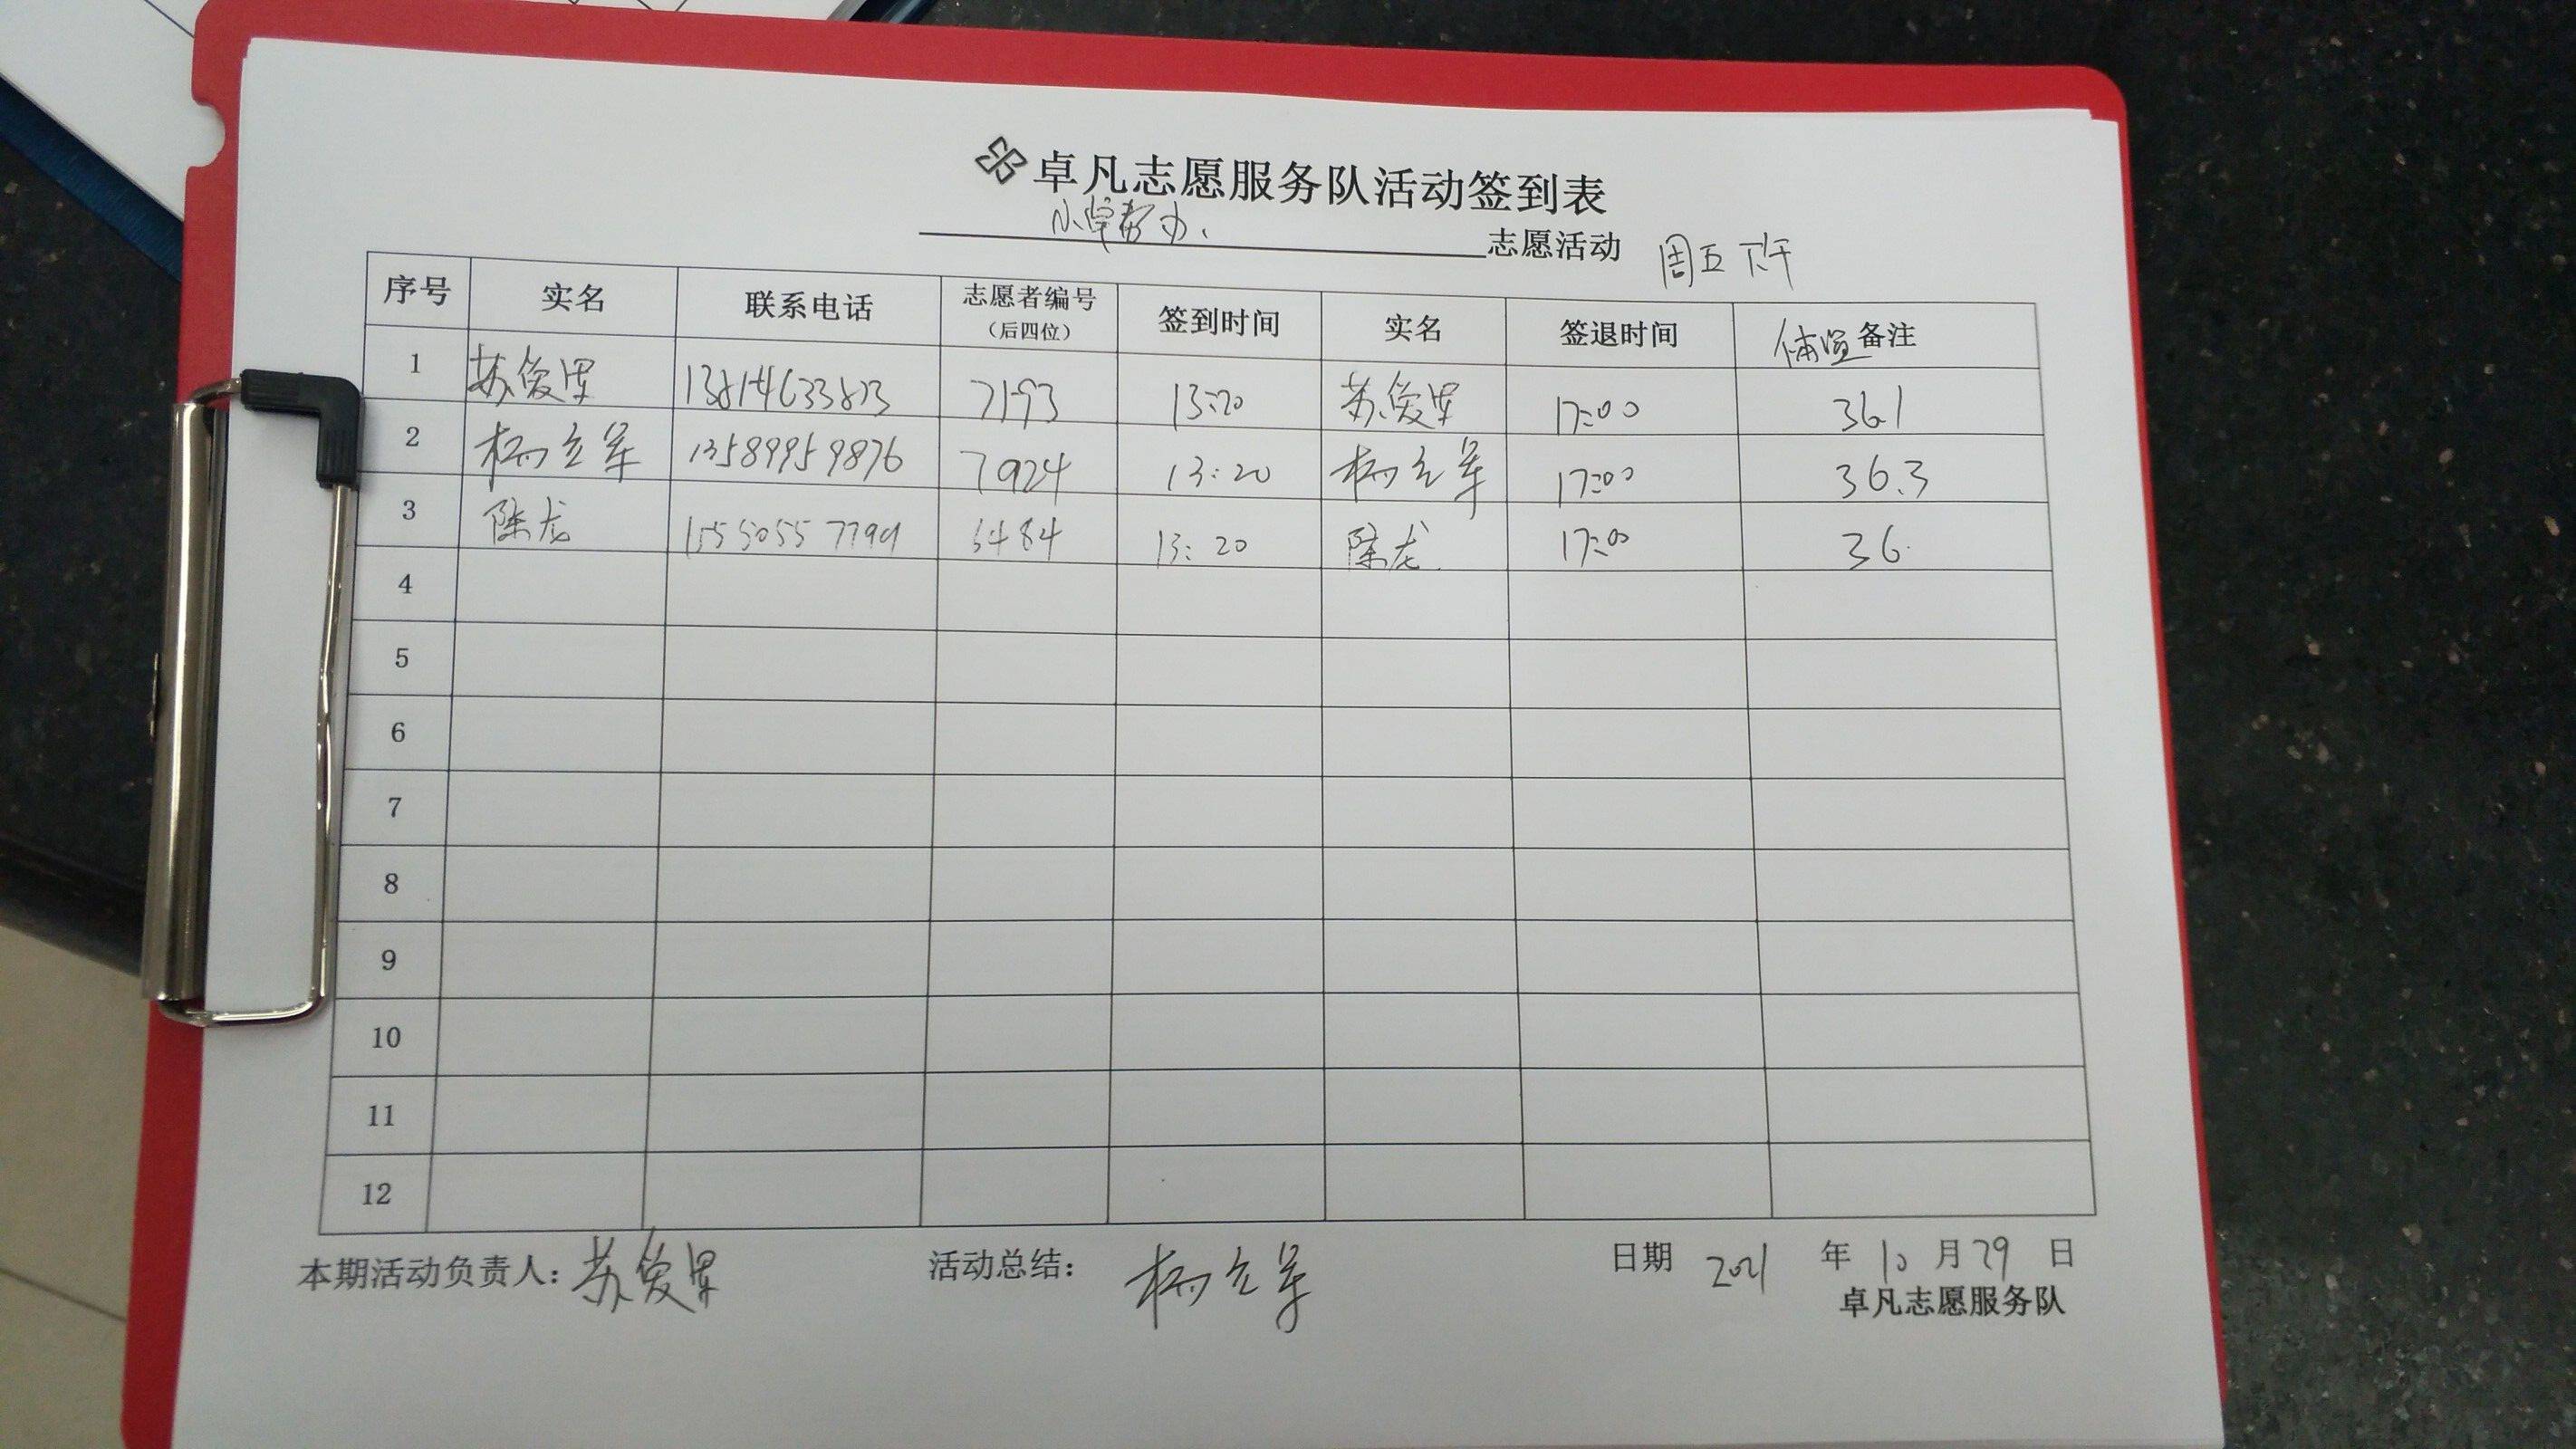 卓凡志愿服务队活动签到表
小卓帮办 志愿活动 周五下午
序号 实名 联系电话 志愿者编号（后四位） 签到时间 实名 签退时间 体温 备注
1 苏俊 7193 13:20 苏俊 17:00 36.1
2 杨立军 13589959876 7924 13:20 杨立军 17:00 36.3
3 陈龙 6484 13:20 陈龙 17:00 36
4
5
6
7
8
9
10
11
12
本期活动负责人：苏俊 活动总结： 杨立军 日期 2021 年 10 月 29 日
卓凡志愿服务队